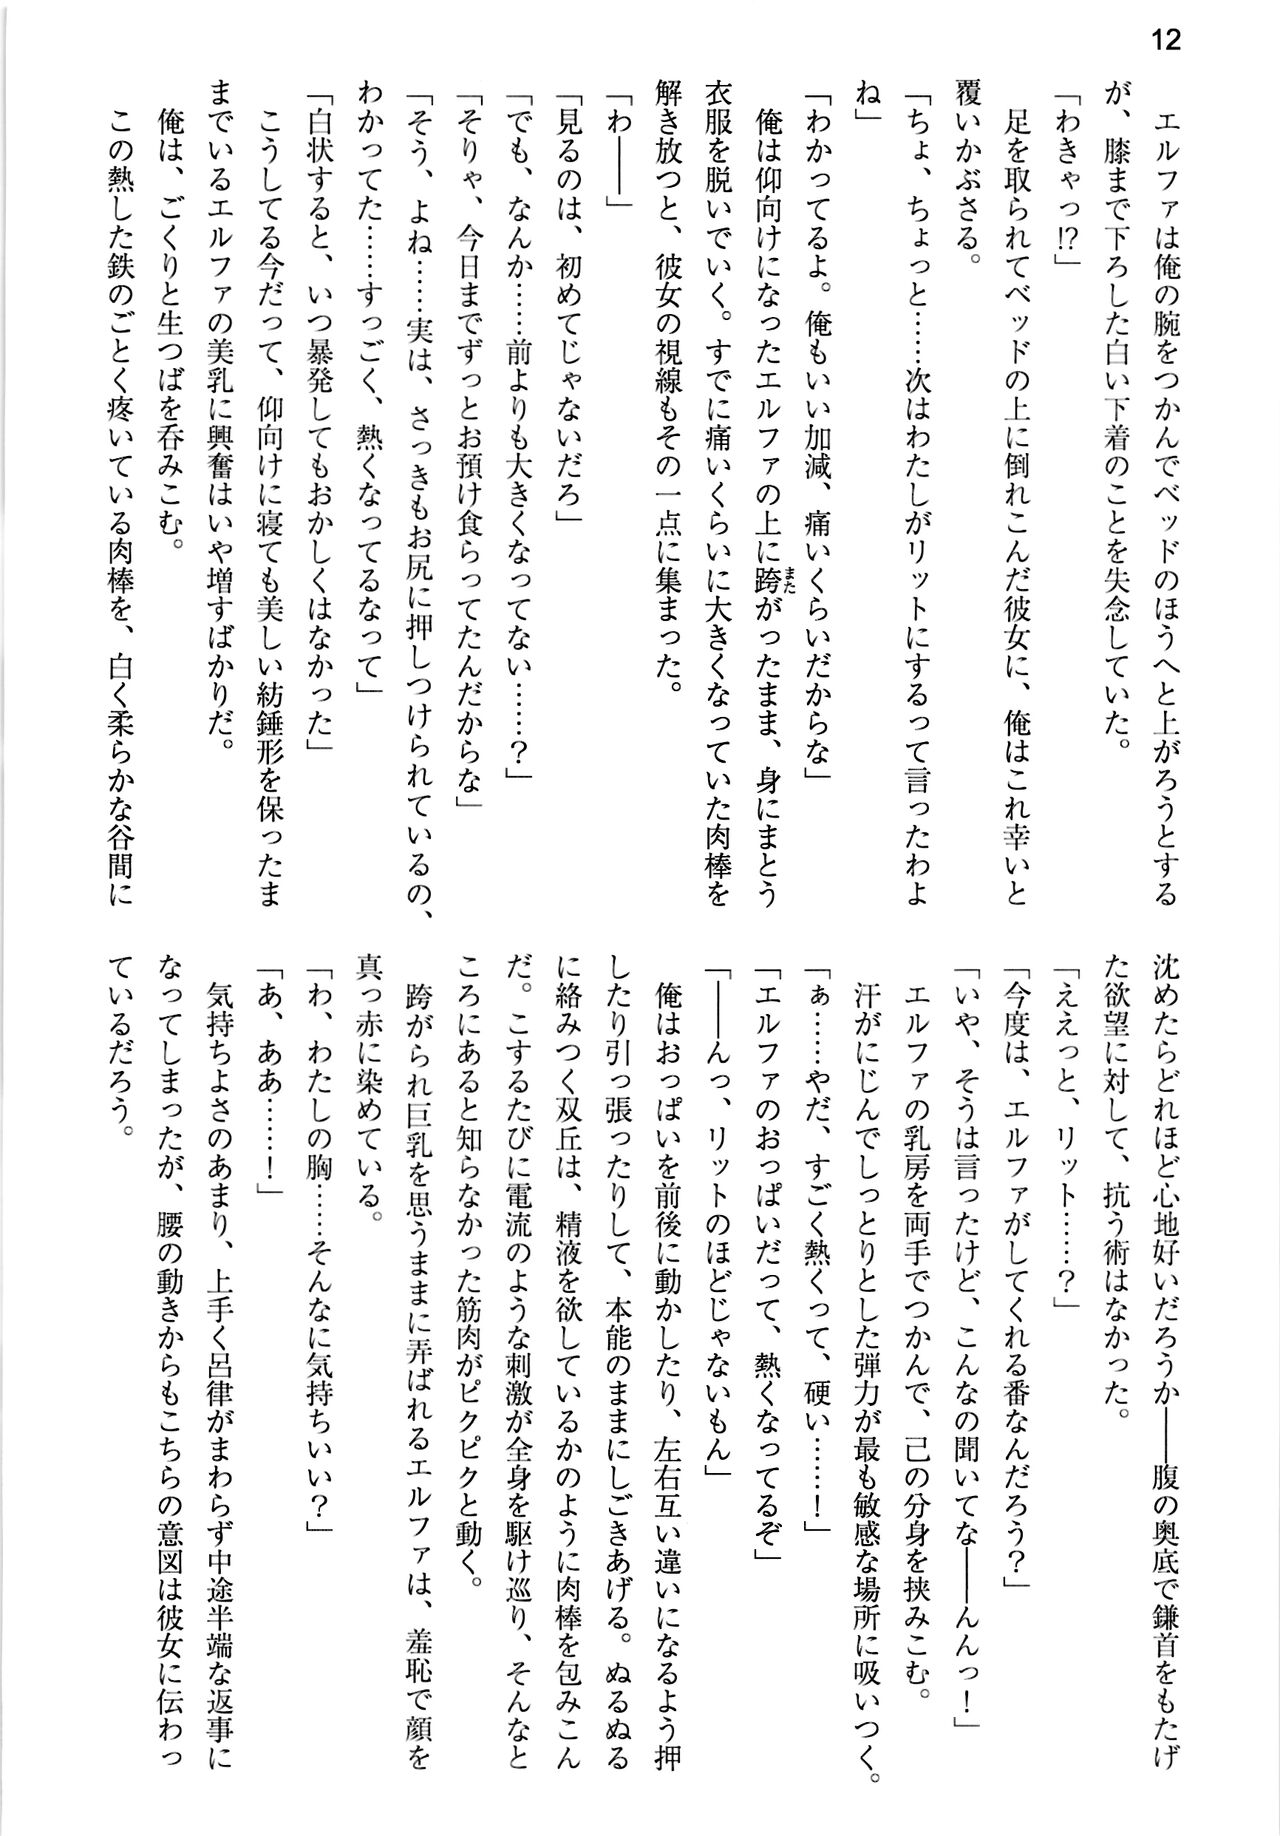 12
エルファは俺の腕をつかんでベッドのほうへと上がろうとする
が、膝まで下ろした白い下着のことを失念していた。
「わきゃっ!?」
足を取られてベッドの上に倒れこんだ彼女に、俺はこれ幸いと
覆いかぶさる。
「ちょ、ちょっと……次はわたしがリットにするって言ったわよ
ね」
「わかってるよ。俺もいい加減、痛いくらいだからな」
俺は仰向けになったエルファの上に跨がったまま、身にまとう
また
衣服を脱いでいく。すでに痛いくらいに大きくなっていた肉棒を
解き放つと、彼女の視線もその一点に集まった。
「わ――」
「見るのは、初めてじゃないだろ」
「でも、なんか……前よりも大きくなってない……?」
「そりゃ、今日までずっとお預け食らってたんだからな」
「そう、よね……実は、さっきもお尻に押しつけられているの、
わかってた……すっごく、熱くなってるなって」
「白状すると、いつ暴発してもおかしくはなかった」
こうしてる今だって、仰向けに寝ても美しい紡錘形を保ったま
までいるエルファの美乳に興奮はいや増すばかりだ。
俺は、ごくりと生つばを呑みこむ。
この熱した鉄のごとく疼いている肉棒を、白く柔らかな谷間に
沈めたらどれほど心地好いだろうか――腹の奥底で鎌首をもたげ
た欲望に対して、抗う術はなかった。
「ええっと、リット……?」
「今度は、エルファがしてくれる番なんだろう?」
「いや、そうは言ったけど、こんなの聞いてな――んんっ!」
エルファの乳房を両手でつかんで、己の分身を挟みこむ。
汗がにじんでしっとりとした弾力が最も敏感な場所に吸いつく。
「ぁ……やだ、すごく熱くって、硬い……!」
「エルファのおっぱいだって、熱くなってるぞ」
「――んっ、リットのほどじゃないもん」
俺はおっぱいを前後に動かしたり、左右互い違いになるよう押
したり引っ張ったりして、本能のままにしごきあげる。ぬるぬる
に絡みつく双丘は、精液を欲しているかのように肉棒を包みこん
だ。こするたびに電流のような刺激が全身を駆け巡り、そんなと
ころにあると知らなかった筋肉がピクピクと動く。
跨がられ巨乳を思うままに弄ばれるエルファは、羞恥で顔を
真っ赤に染めている。
「わ、わたしの胸……そんなに気持ちいい?」
「あ、ああ……!」
気持ちよさのあまり、上手く呂律がまわらず中途半端な返事に
なってしまったが、腰の動きからもこちらの意図は彼女に伝わっ
ているだろう。